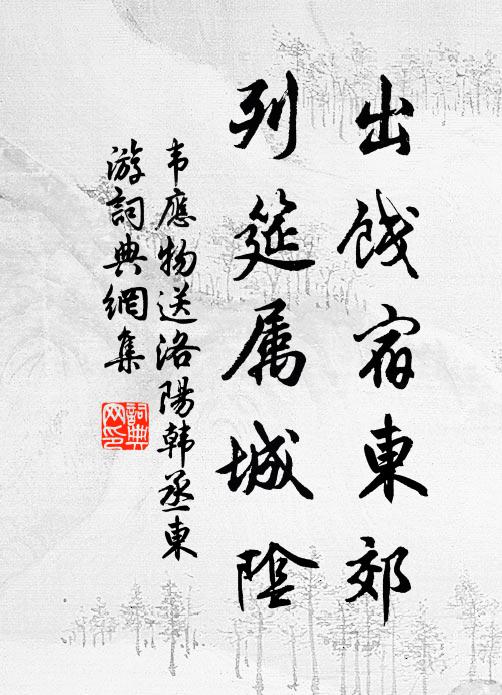 出餞宿東郊
列筵属城陰
韦應物送洛陽韓丞東
游詞典網集
詞典网印